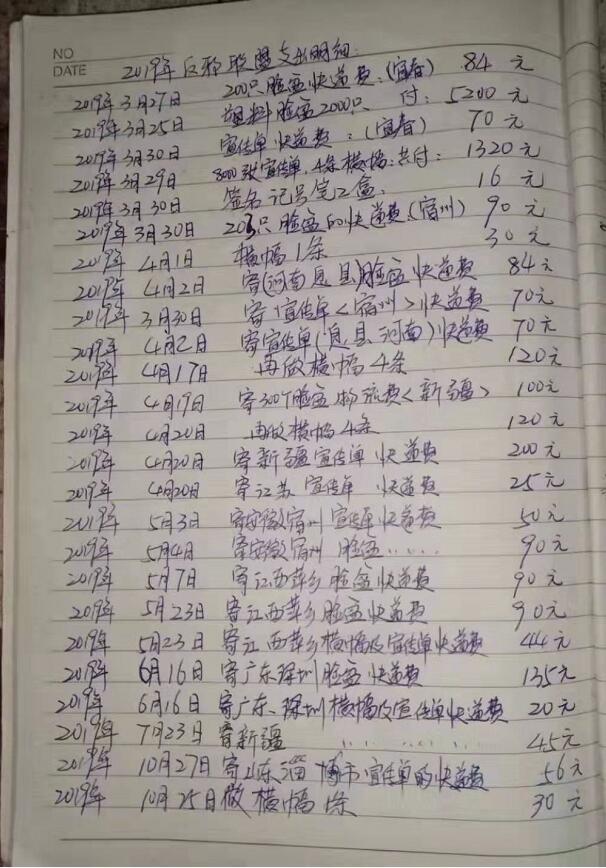 NO
DATE
2019年反邪联盟支出明细:
2019年3月27日 200只脸盆快递费:(宜春) 84元
2019年3月25日 塑料脸盆2000只 付: 5200元
2019年3月30日 宣传单快递费:(宜春) 70元
2019年3月29日 8000张宣传单,4条横幅:共付: 1320元
2019年3月30日 签名记号笔2盒. 16元
2019年3月30日 203只脸盆的快递费.(宿州) 90元
2019年4月1日 横幅1条 30元
2019年4月2日 寄(河南息县)脸盆快递费 84元
2019年3月30日 寄宣传单<宿州>快递费 70元
2019年4月2日 寄宣传单(息县河南)快递费 70元
2019年4月17日 再做横幅4条 120元
2019年4月19日 寄300个脸盆物流费<新疆> 100元
2019年4月20日 再做横幅4条 120元
2019年4月20日 寄新疆宣传单快递费 200元
2019年4月20日 寄江苏宣传单 快递费 25元
2019年5月3日 寄安徽宿州宣传单快递费 50元
2019年5月4日 寄安徽宿州 脸盆…… 90元
2019年5月7日 寄江西萍乡脸盆快递费 90元
2019年5月23日 寄江西萍乡脸盆快递费 90元
2019年5月23日 寄江西萍乡横幅及宣传单快递费 44元
2019年6月16日 寄广东深圳脸盆快递费 135元
2019年6月16日 寄广东、深圳横幅及宣传单快递费 20元
2019年7月23日 寄新疆 …… 45元
2019年10月27日 寄山东淄博市宣传单的快递费 56元
2019年10月25日 做横幅1条 30元